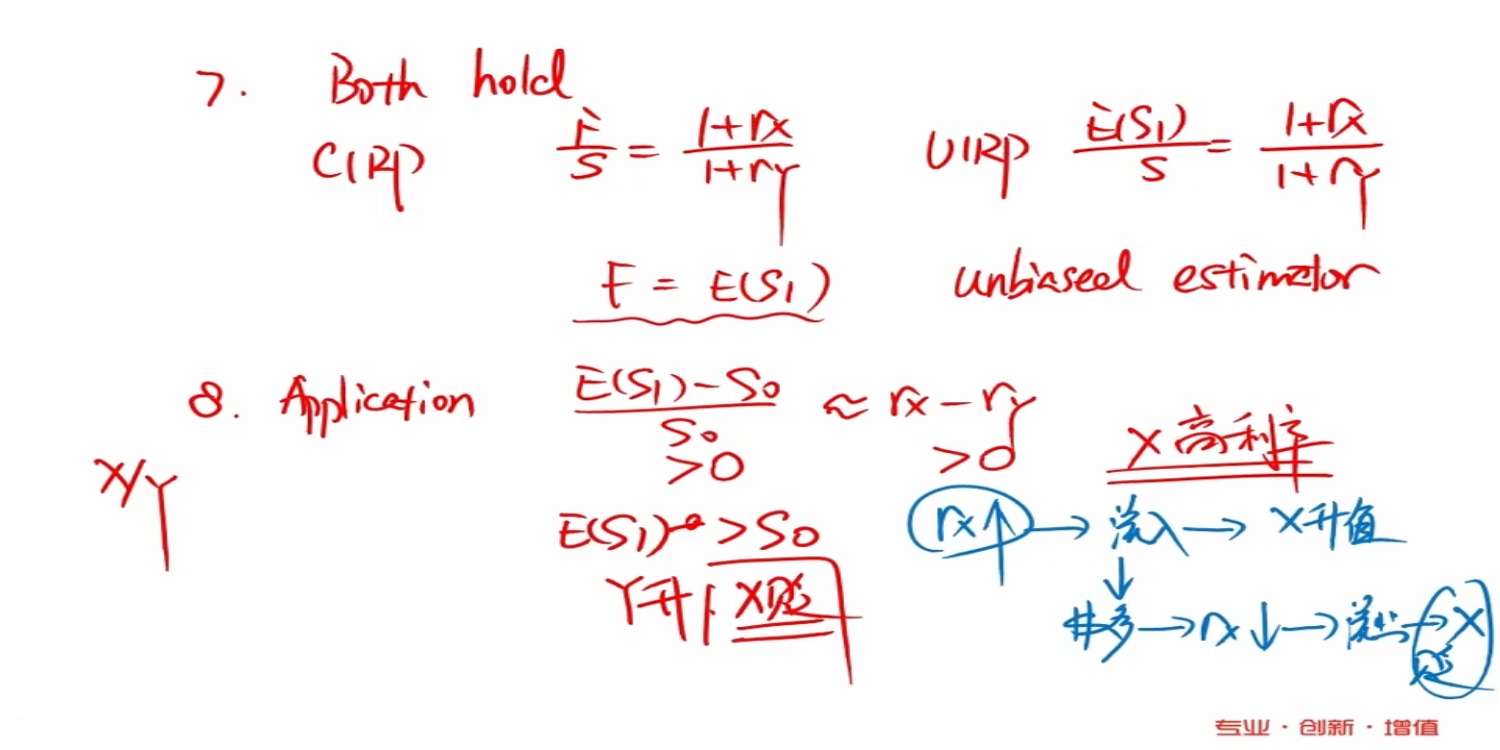 7. Both hold
CIRP F/S = (1+rx)/(1+rY) UIRP E(S1)/S = (1+rx)/(1+rY)
F = E(S1) unbiased estimator
8. Application (E(S1)-S0)/S0 ≈ rx-rY
>0 >0 X高利率
X/Y
E(S1) > S0 rx↑ → 流入 → X升值
Y升 X贬 ↓
#多 → rx↓ → 流出 → X
贬
专业·创新·增值